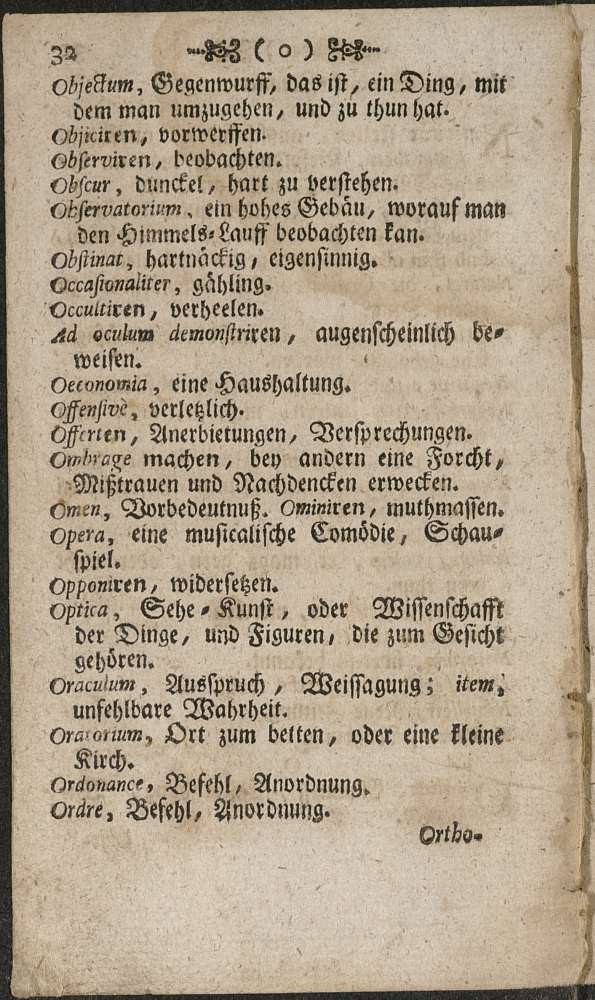 32 ( o )
Objectum, Gegenwurff, das ist, ein Ding, mit
dem man umzugehen, und zu thun hat.
Objiciren, vorwerffen.
Observiren, beobachten.
Obscur, dunckel, hart zu verstehen.
Observatorium, ein hohes Gebäu, worauf man
den Himmels-Lauff beobachten kan.
Obstinat, hartnäckig, eigensinnig.
Occasionaliter, gähling.
Occultiren, verheelen.
Ad oculum demonstriren, augenscheinlich be-
weisen.
Oeconomia, eine Haushaltung.
Offensivè, verletzlich.
Offerten, Anerbietungen, Versprechungen.
Ombrage machen, bey andern eine Forcht,
Mißtrauen und Nachdencken erwecken.
Omen, Vorbedeutnuß. Ominiren, muthmassen.
Opera, eine musicalische Comödie, Schau-
spiel.
Opponiren, widersetzen.
Optica, Sehe-Kunst, oder Wissenschafft
der Dinge, und Figuren, die zum Gesicht
gehören.
Oraculum, Ausspruch, Weissagung; item,
unfehlbare Wahrheit.
Oratorium, Ort zum betten, oder eine kleine
Kirch.
Ordonance, Befehl, Anordnung.
Ordre, Befehl, Anordnung.
Ortho-